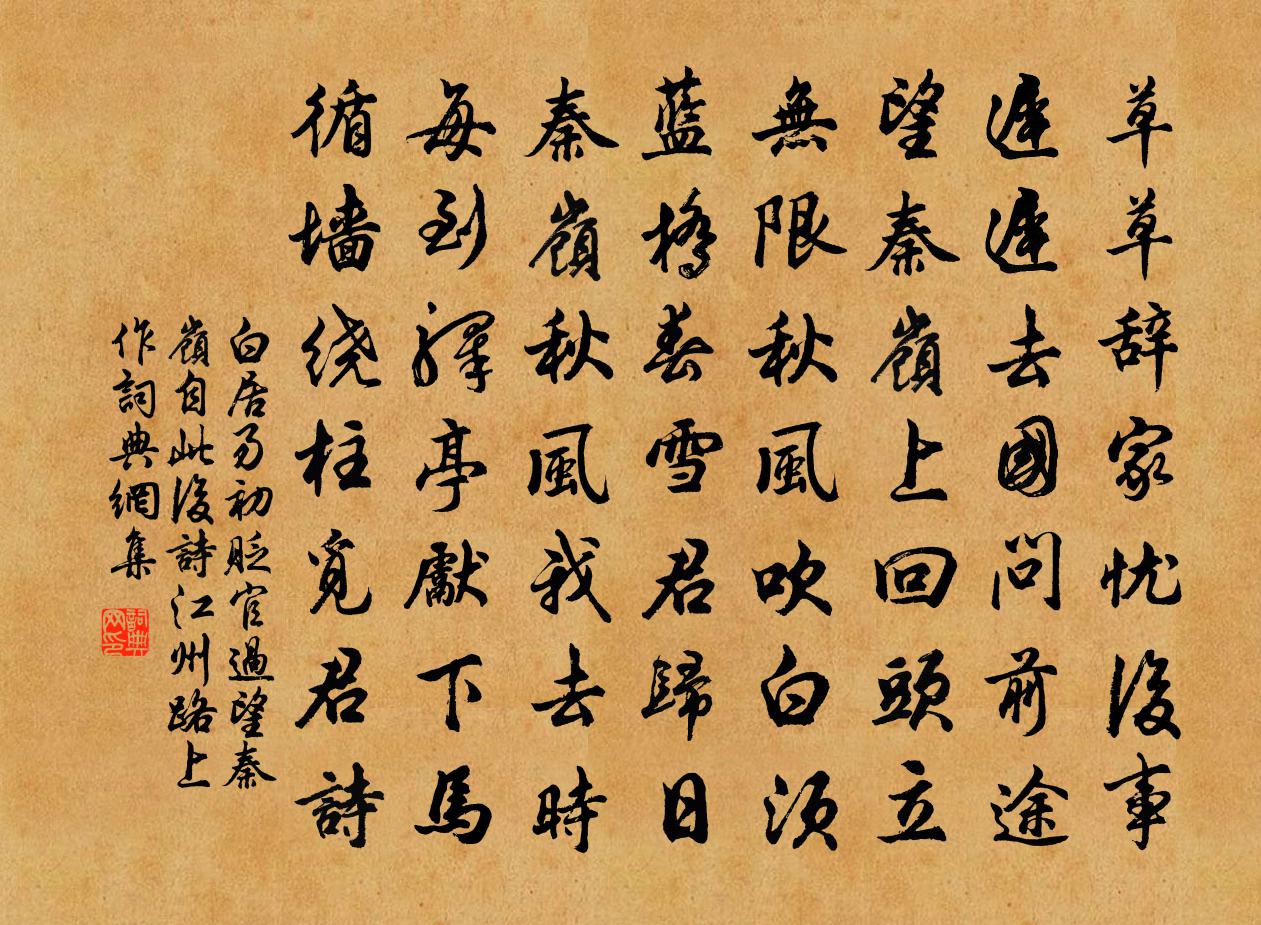 草草辞家忧後事
遲遲去國問前途
望秦嶺上回頭立
無限秋風吹白須
藍橋春雪君歸日
秦嶺秋風我去時
每到驛亭獻下馬
循墙绕柱覓君詩
白居易初貶官過望秦
嶺自此後詩江州路上
作詞典網集
詞典网印